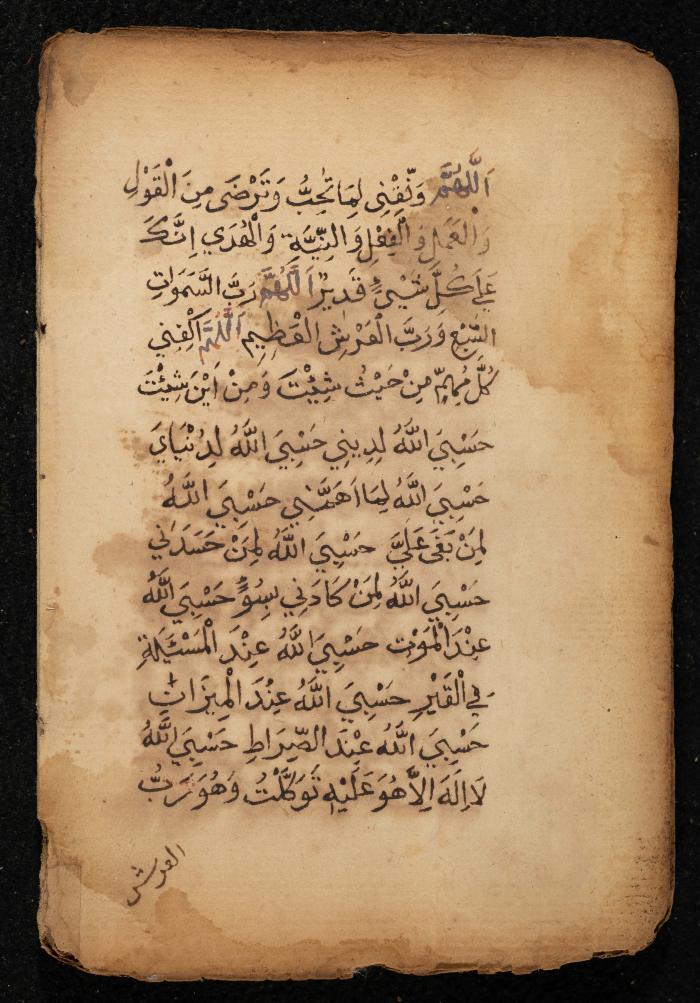 اَللّٰهُمَّ وَفِّقْنِي لِمَا تُحِبُّ وَتَرْضَى مِنَ الْقَوْلِ
وَالْعَمَلِ وَالْفِعْلِ وَالنِّيَّةِ وَالْهُدَي اِنَّكَ
عَلَى كُلِّ شَيْئٍ قَدِيرٌ اَللّٰهُمَّ رَبَّ السَّمَوَاتِ
السَّبْعِ وَرَبَّ الْعَرْشِ الْعَظِيمِ اَللّٰهُمَّ اكْفِنِي
كُلَّ مُهِمٍّ مِنْ حَيْثُ شِئْتَ وَمِنْ اَيْنَ شِئْتَ
حَسْبِيَ اللّٰهُ لِدِينِي حَسْبِيَ اللّٰهُ لِدُنْيَايَ
حَسْبِيَ اللّٰهُ لِمَا اَهَمَّنِي حَسْبِيَ اللّٰهُ
لِمَنْ بَغَى عَلَيَّ حَسْبِيَ اللّٰهُ لِمَنْ حَسَدَنِي
حَسْبِيَ اللّٰهُ لِمَنْ كَادَنِي بِسُوءٍ حَسْبِيَ اللّٰهُ
عِنْدَ الْمَوْتِ حَسْبِيَ اللّٰهُ عِنْدَ الْمَسْئَلَةِ
فِي الْقَبْرِ حَسْبِيَ اللّٰهُ عِنْدَ الْمِيزَانِ
حَسْبِيَ اللّٰهُ عِنْدَ الصِّرَاطِ حَسْبِيَ اللّٰهُ
لَا اِلَهَ اِلَّا هُوَ عَلَيْهِ تَوَكَّلْتُ وَهُوَ رَبُّ
العرش